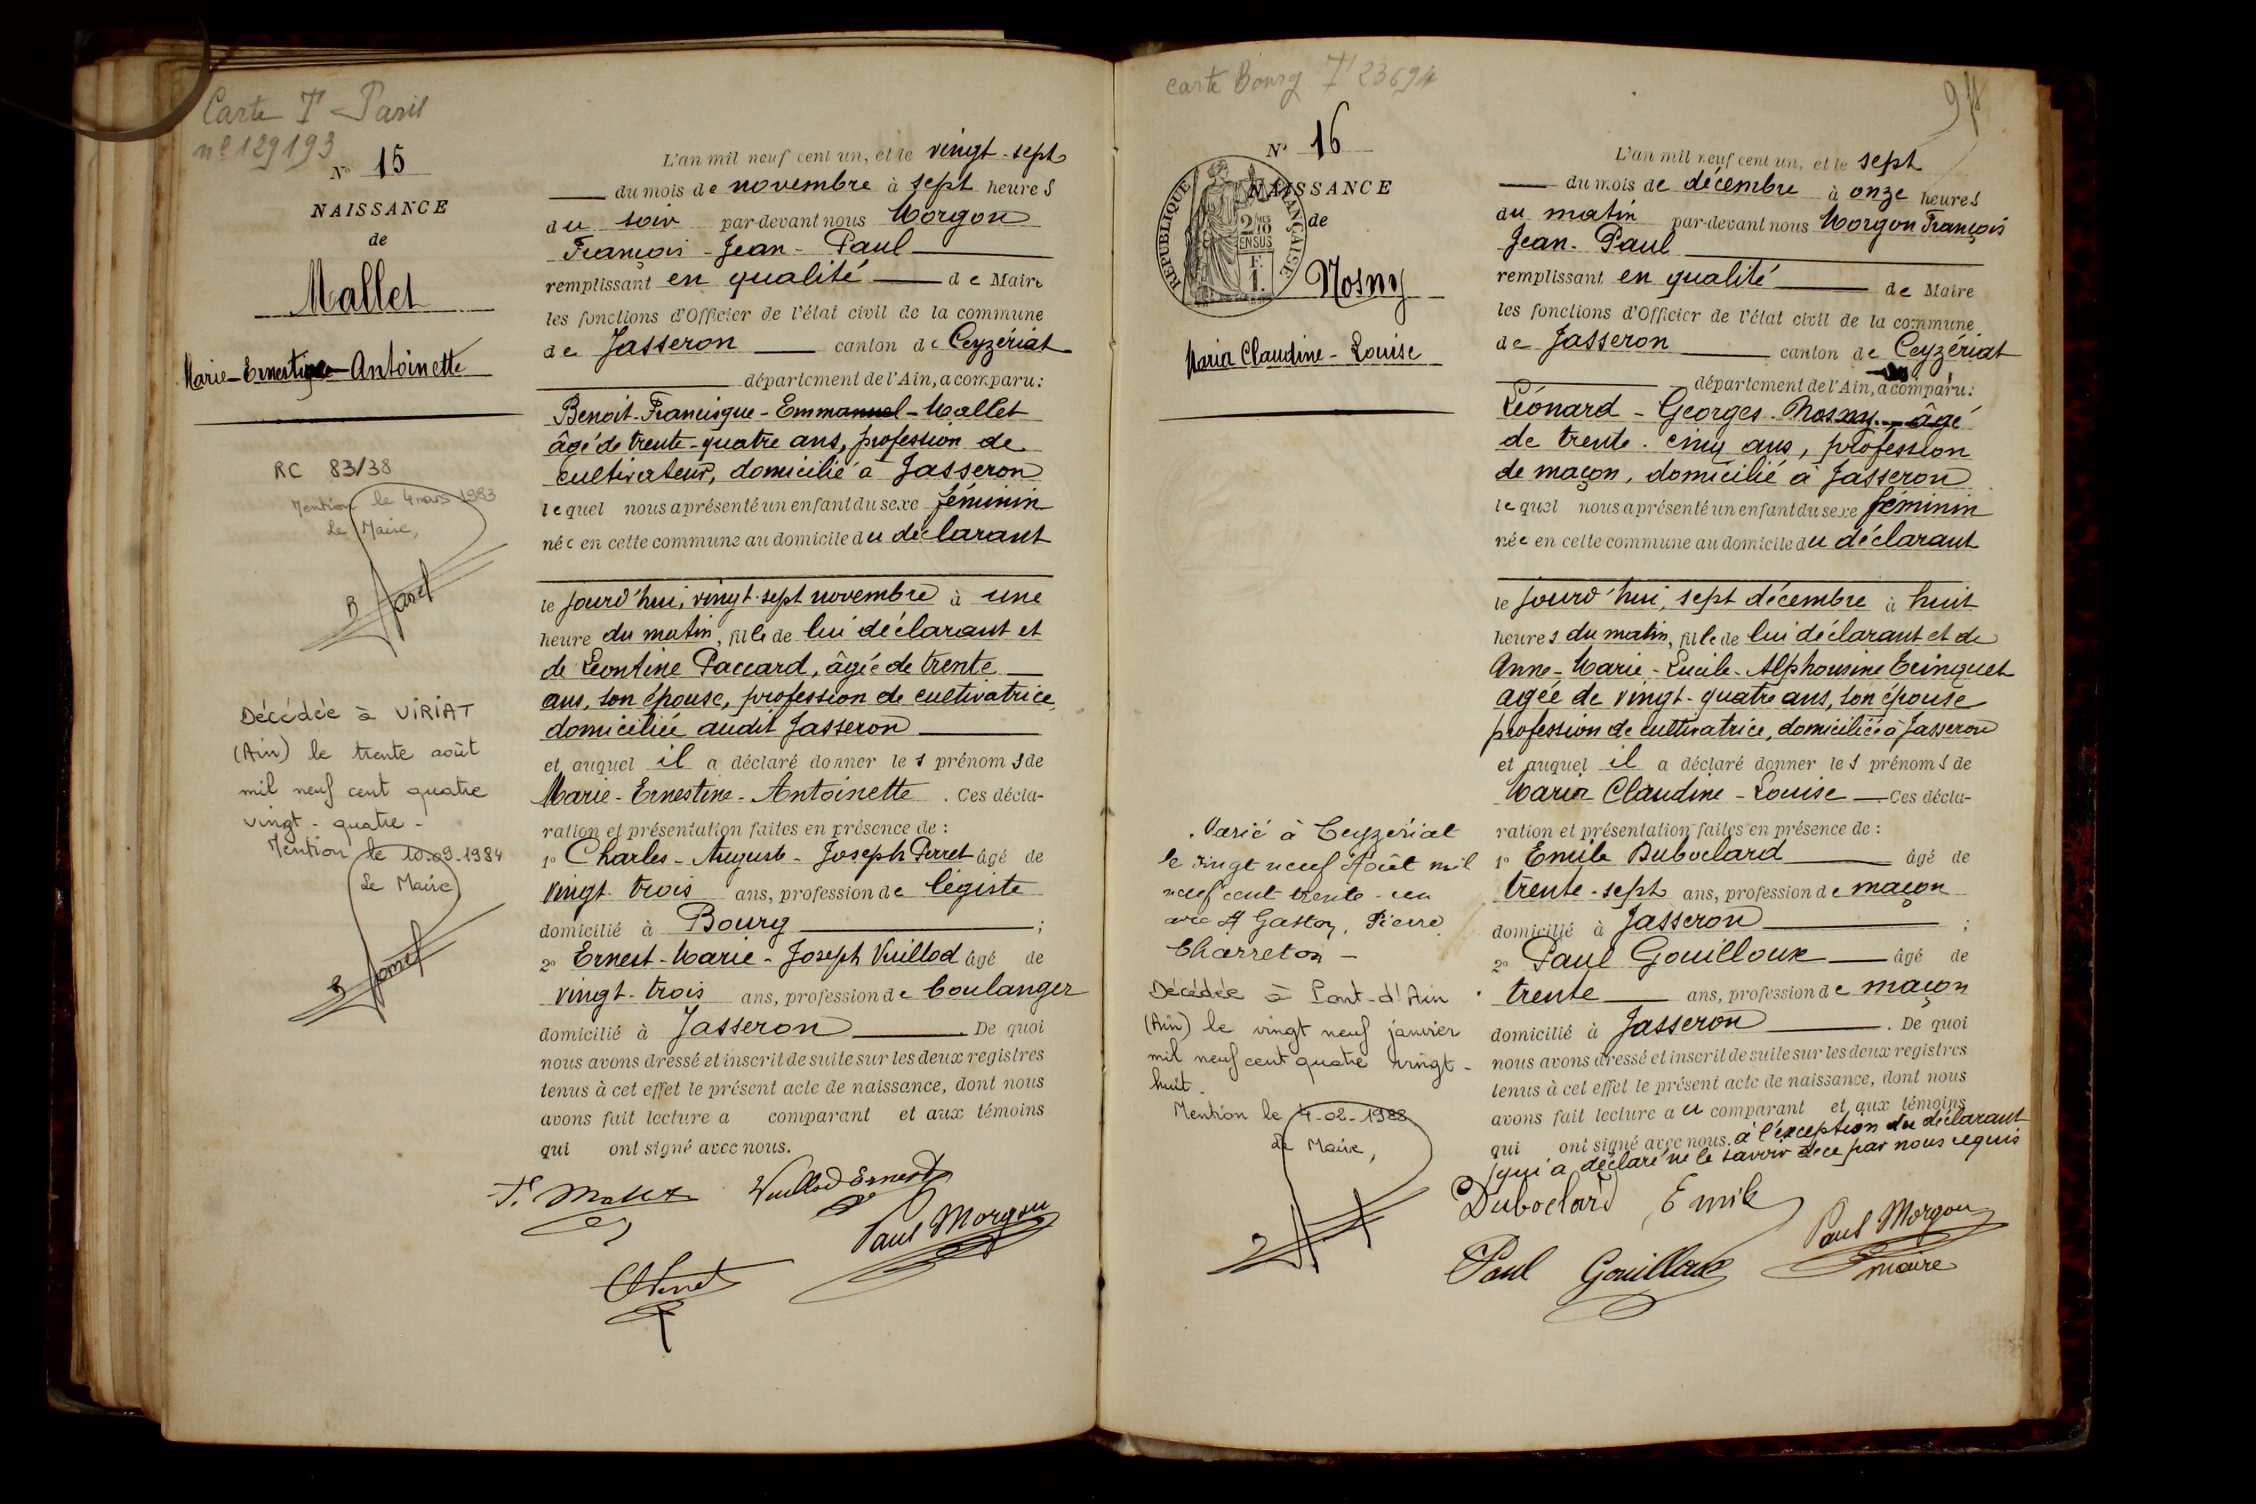 Carte T Paris
nº 129193
Nº 15
NAISSANCE
de
Mallet
Marie-Ernestine-Antoinette
RC 83/38
Mention le 4 mars 1983
Le Maire,
Décédée à VIRIAT
(Ain) le trente août
mil neuf cent quatre
vingt-quatre-
Mention le 10-09-1984
Le Maire
L'an mil neuf cent un, et le vingt-sept
du mois de novembre à sept heures
du soir par-devant nous Morgon
François-Jean-Paul
remplissant en qualité de Maire
les fonctions d'Officier de l'état civil de la commune
de Jasseron canton de Ceyzériat
département de l'Ain, a comparu:
Benoit-Francisque-Emmanuel-Mallet
âgé de trente-quatre ans, profession de
cultivateur, domicilié à Jasseron
lequel nous a présenté un enfant du sexe féminin
née en cette commune au domicile du déclarant
le jourd'hui, vingt-sept novembre à une
heure du matin, fille de lui déclarant et
de Léontine Paccard, âgée de trente
ans, son épouse, profession de cultivatrice,
domiciliée audit Jasseron
et auquel il a déclaré donner les prénoms de
Marie-Ernestine-Antoinette. Ces décla-
ration et présentation faites en présence de:
1º Charles-Auguste-Joseph Perret âgé de
vingt-trois ans, profession de légiste
domicilié à Bourg ;
2º Ernest-Marie-Joseph Vuillod âgé de
vingt-trois ans, profession de boulanger
domicilié à Jasseron. De quoi
nous avons dressé et inscrit de suite sur les deux registres
tenus à cet effet le présent acte de naissance, dont nous
avons fait lecture a comparant et aux témoins
qui ont signé avec nous.
F. Mallet Vuillod Ernest
Paul Morgon
carte Bourg T 23694
Nº 16
NAISSANCE
de
RÉPUBLIQUE FRANÇAISE
Nosny
Maria Claudine-Louise
Marié à Ceyzériat
le vingt neuf Août mil
neuf cent trente-un
avec Gaston, Pierre
Charreton-
Décédée à Pont-d'Ain
(Ain) le vingt neuf janvier
mil neuf cent quatre vingt-
huit.
Mention le 4-02-1988
Le Maire,
L'an mil neuf cent un, et le sept
du mois de décembre à onze heures
du matin par-devant nous Morgon François
Jean-Paul
remplissant en qualité de Maire
les fonctions d'Officier de l'état civil de la commune
de Jasseron canton de Ceyzériat
département de l'Ain, a comparu:
Léonard-Georges-Nosny âgé
de trente-cinq ans, profession
de maçon, domicilié à Jasseron
lequel nous a présenté un enfant du sexe féminin
née en cette commune au domicile du déclarant
le jourd'hui, sept décembre à huit
heures du matin, fille de lui déclarant et de
Anne-Marie-Lucile-Alphonsine Ecinquet
agée de vingt-quatre ans, son épouse
profession de cultivatrice, domiciliée à Jasseron
et auquel il a déclaré donner les prénoms de
Maria Claudine-Louise Ces décla-
ration et présentation faites en présence de:
1º Emile Duboclard âgé de
trente-sept ans, profession de maçon
domicilié à Jasseron ;
2º Paul Gouilloux âgé de
trente ans, profession de maçon
domicilié à Jasseron. De quoi
nous avons dressé et inscrit de suite sur les deux registres
tenus à cet effet le présent acte de naissance, dont nous
avons fait lecture au comparant et aux témoins
qui ont signé avec nous. à l'exception du déclarant
qui a déclaré ne le savoir de ce par nous requis
Duboclard Emile
Paul Morgon
Paul Gouilloux
maire